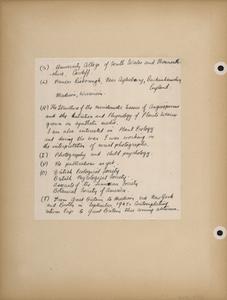 (G) University College of South Wales and Monmouth-
shire, Cardiff.
(H) Princes Risborough, Near Aylesbury, Buckinghamshire
England.
Madison, Wisconsin.
The Structure of the meristematic tissues of Angiosperms
and the Nutrition and Physiology of Plants
grown in synthetic media.
I am also interested in Plant Ecology
and during the war I was working on
the interpretation of aerial photographs.
Photography and child psychology.
No publications as yet.
British Ecological Society
British Mycological Society.
Associate of the Linnean Society
Botanical Society of America.
From Great Britain to Madison, via New York
and in September 1947. Contemplating
return trip to Great Britain this coming summer.